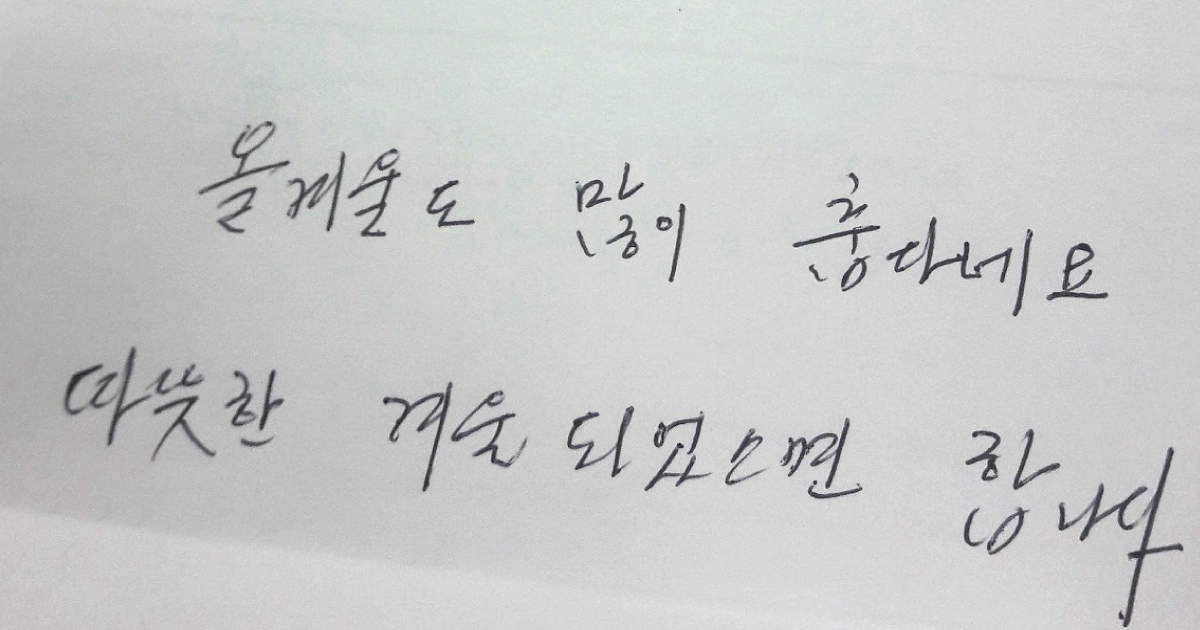 올겨울도 많이 춥다네요
따뜻한 겨울 되었으면 합니다